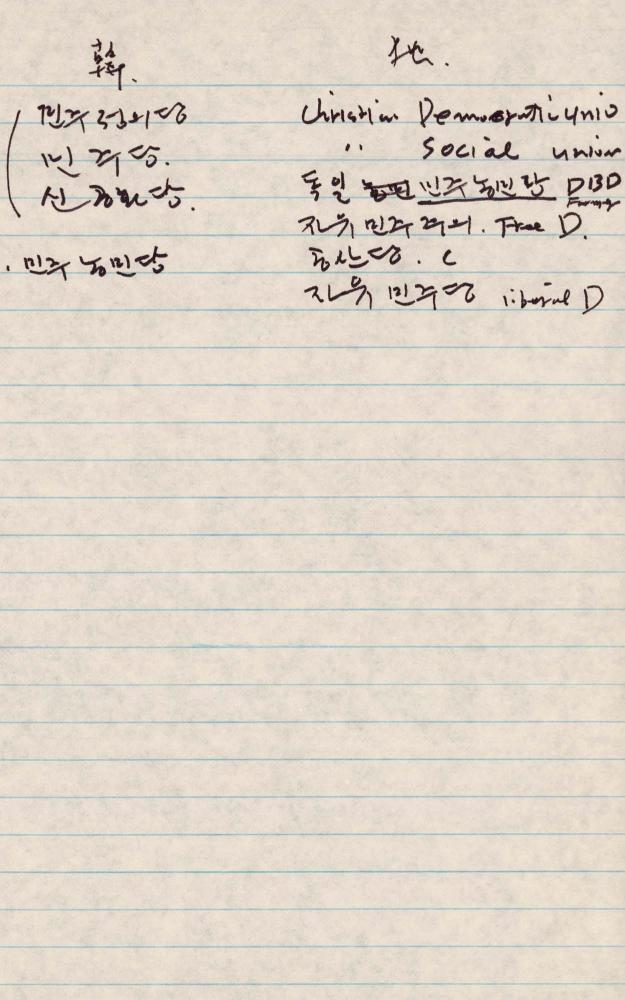 韓.
민주정의당
민주당.
신공화당.
. 민주 농민당
他.
Christian Democratic unio
〃 Social union
독일 민주 농민당 DBD Farmer
자유 민주 주의. Free D.
공산당. C
자유 민주당 liberal D